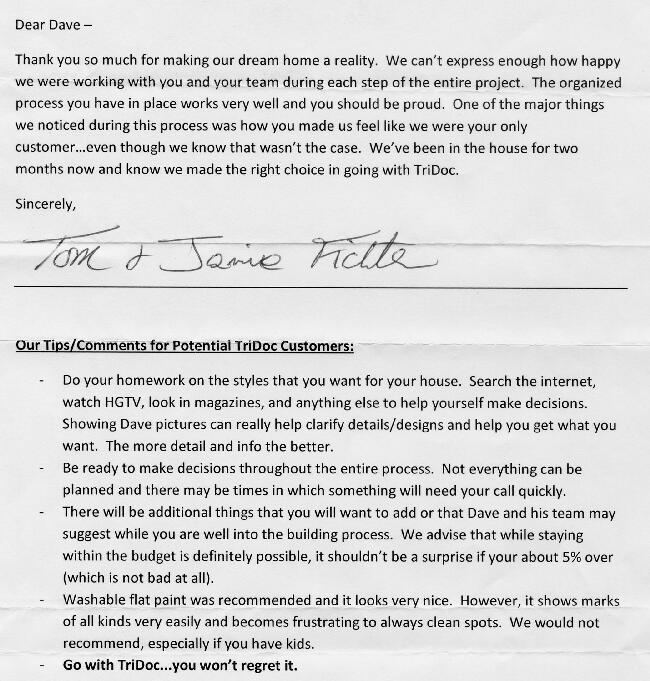 Dear Dave –
Thank you so much for making our dream home a reality. We can't express enough how happy
we were working with you and your team during each step of the entire project. The organized
process you have in place works very well and you should be proud. One of the major things
we noticed during this process was how you made us feel like we were your only
customer...even though we know that wasn't the case. We've been in the house for two
months now and know we made the right choice in going with TriDoc.
Sincerely,
Tom & Jamie Fichte
Our Tips/Comments for Potential TriDoc Customers:
- Do your homework on the styles that you want for your house. Search the internet,
watch HGTV, look in magazines, and anything else to help yourself make decisions.
Showing Dave pictures can really help clarify details/designs and help you get what you
want. The more detail and info the better.
- Be ready to make decisions throughout the entire process. Not everything can be
planned and there may be times in which something will need your call quickly.
- There will be additional things that you will want to add or that Dave and his team may
suggest while you are well into the building process. We advise that while staying
within the budget is definitely possible, it shouldn't be a surprise if your about 5% over
(which is not bad at all).
- Washable flat paint was recommended and it looks very nice. However, it shows marks
of all kinds very easily and becomes frustrating to always clean spots. We would not
recommend, especially if you have kids.
- Go with TriDoc...you won't regret it.